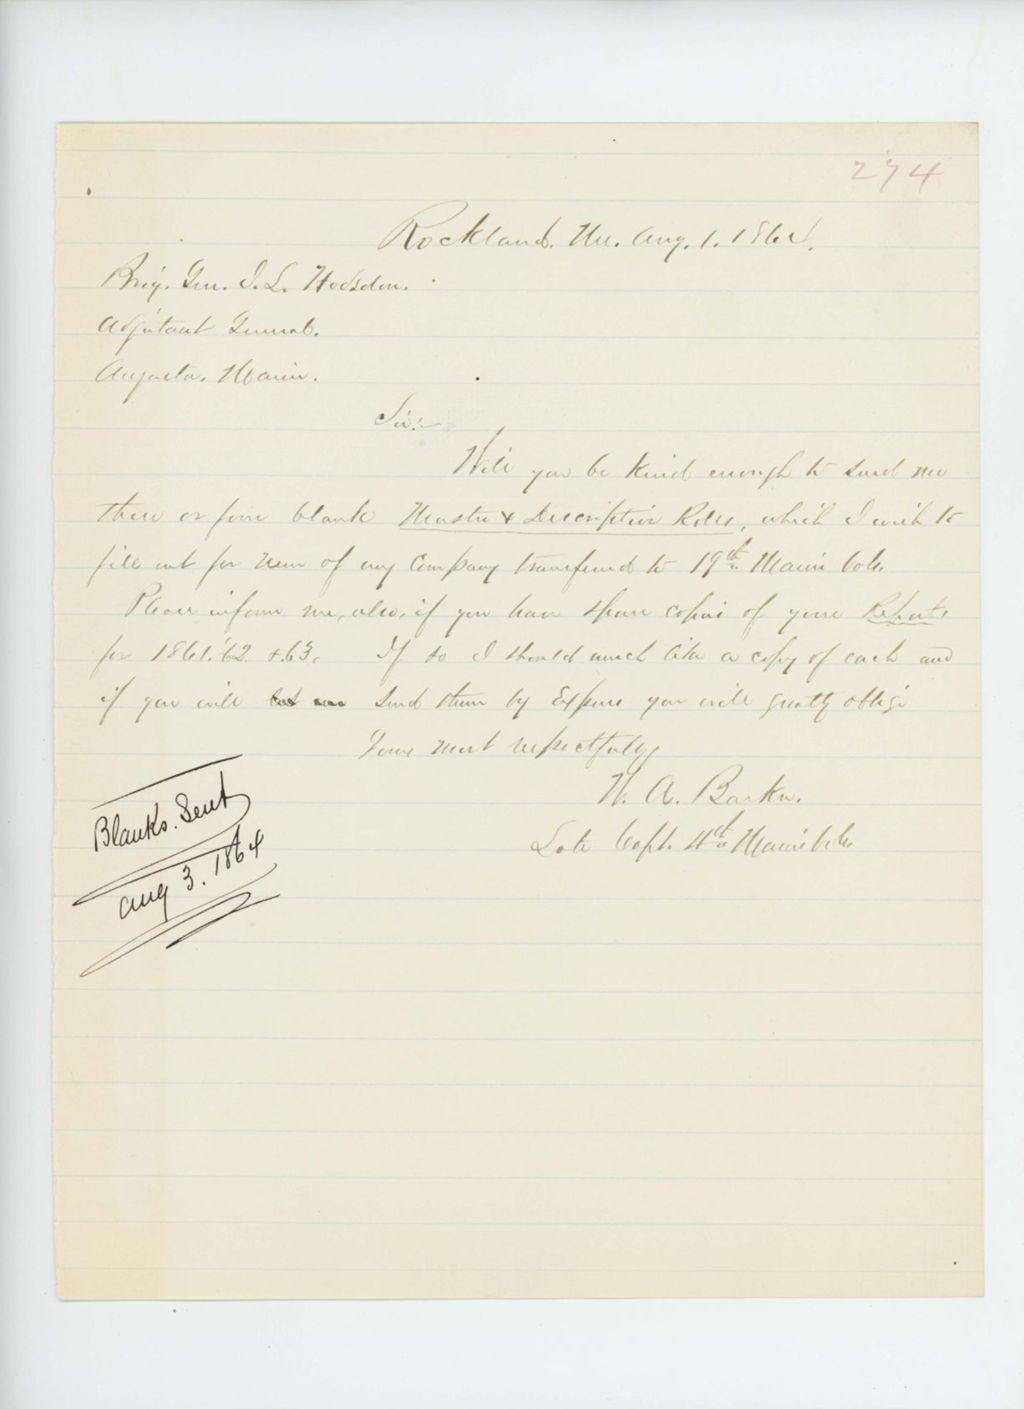 274
Rockland. Me. Aug. 1. 1864.
Brig. Gen. J. L. Hodsdon.
Adjutant General.
Augusta. Maine.
Sir:-
Will you be kind enough to send me
three or four blank Muster & Descriptive Rolls, which I wish to
fill out for men of my Company transferred to 19th Maine Vols.
Please inform me, also, if you have spare copies of your Reports
for 1861. '62 & 63. If so I should much like a copy of each and
if you will send them by Express you will greatly oblige
Yours most respectfully
W. A. Barker.
Late Capt. 4th Maine Vols.
Blanks. Sent
Aug 3. 1864